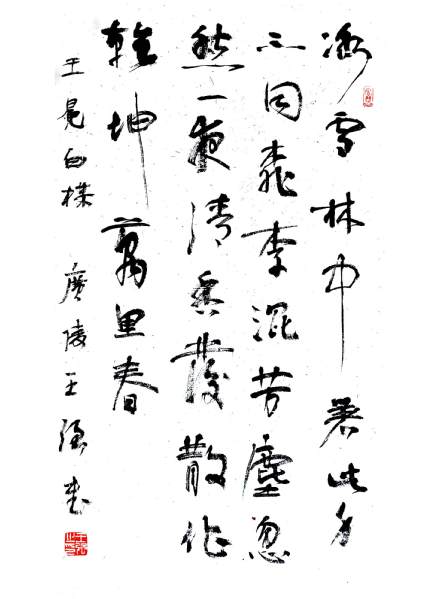 冰雪林中著此身
不同桃李混芳塵忽
然一夜清香發散作
乾坤萬里春
王冕白楳 廣陵王強書